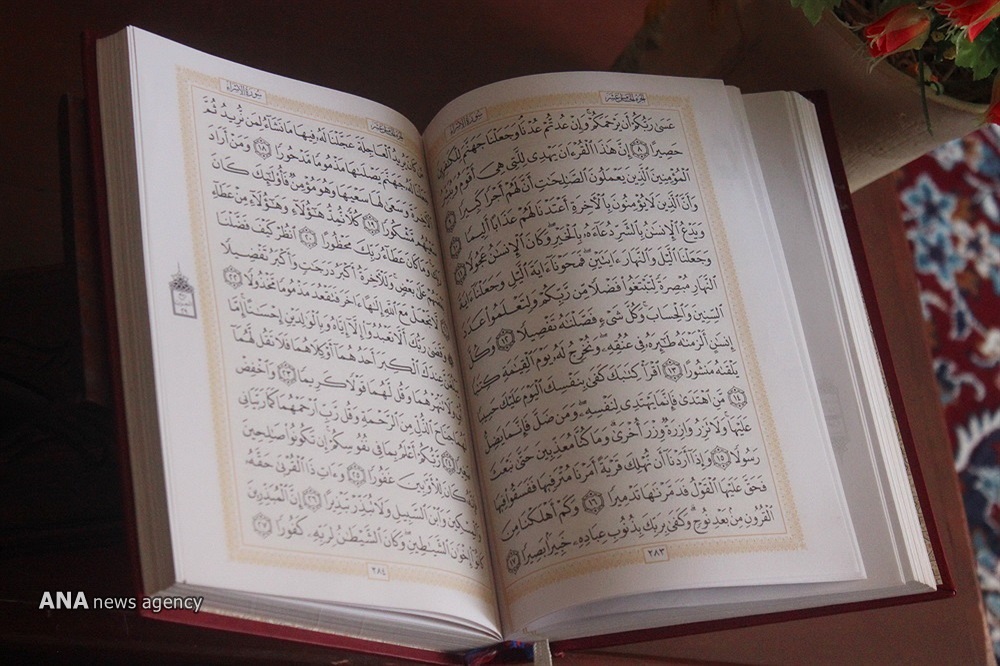 سورة الإسراء
الجزء الخامس عشر
عَسَىٰ رَبُّكُمْ أَن يَرْحَمَكُمْ وَإِنْ عُدتُّمْ عُدْنَا وَجَعَلْنَا جَهَنَّمَ لِلْكَٰفِرِينَ
حَصِيرًا ٨ إِنَّ هَٰذَا ٱلْقُرْءَانَ يَهْدِى لِلَّتِى هِىَ أَقْوَمُ
ٱلْمُؤْمِنِينَ ٱلَّذِينَ يَعْمَلُونَ ٱلصَّٰلِحَٰتِ أَنَّ لَهُمْ أَجْرًا كَبِيرًا ٩
وَأَنَّ ٱلَّذِينَ لَا يُؤْمِنُونَ بِٱلْءَاخِرَةِ أَعْتَدْنَا لَهُمْ عَذَابًا أَلِيمًا ١٠
وَيَدْعُ ٱلْإِنسَٰنُ بِٱلشَّرِّ دُعَآءَهُۥ بِٱلْخَيْرِ وَكَانَ ٱلْإِنسَٰنُ عَجُولًا ١١
وَجَعَلْنَا ٱلَّيْلَ وَٱلنَّهَارَ ءَايَتَيْنِ فَمَحَوْنَآ ءَايَةَ ٱلَّيْلِ وَجَعَلْنَآ ءَايَةَ
ٱلنَّهَارِ مُبْصِرَةً لِّتَبْتَغُوا۟ فَضْلًا مِّن رَّبِّكُمْ وَلِتَعْلَمُوا۟ عَدَدَ
ٱلسِّنِينَ وَٱلْحِسَابَ وَكُلَّ شَىْءٍ فَصَّلْنَٰهُ تَفْصِيلًا ١٢ وَكُلَّ
إِنسَٰنٍ أَلْزَمْنَٰهُ طَٰٓئِرَهُۥ فِى عُنُقِهِۦ وَنُخْرِجُ لَهُۥ يَوْمَ ٱلْقِيَٰمَةِ كِتَٰبًا
يَلْقَىٰهُ مَنشُورًا ١٣ ٱقْرَأْ كِتَٰبَكَ كَفَىٰ بِنَفْسِكَ ٱلْيَوْمَ عَلَيْكَ حَسِيبًا
١٤ مَّنِ ٱهْتَدَىٰ فَإِنَّمَا يَهْتَدِى لِنَفْسِهِۦ وَمَن ضَلَّ فَإِنَّمَا يَضِلُّ
عَلَيْهَا وَلَا تَزِرُ وَازِرَةٌ وِزْرَ أُخْرَىٰ وَمَا كُنَّا مُعَذِّبِينَ حَتَّىٰ نَبْعَثَ
رَسُولًا ١٥ وَإِذَآ أَرَدْنَآ أَن نُّهْلِكَ قَرْيَةً أَمَرْنَا مُتْرَفِيهَا فَفَسَقُوا۟ فِيهَا
فَحَقَّ عَلَيْهَا ٱلْقَوْلُ فَدَمَّرْنَٰهَا تَدْمِيرًا ١٦ وَكَمْ أَهْلَكْنَا مِنَ
ٱلْقُرُونِ مِنۢ بَعْدِ نُوحٍ وَكَفَىٰ بِرَبِّكَ بِذُنُوبِ عِبَادِهِۦ خَبِيرًۢا بَصِيرًا ١٧
٢٨٣
سورة الإسراء
الجزء الخامس عشر
كَانَ يُرِيدُ ٱلْعَاجِلَةَ عَجَّلْنَا لَهُۥ فِيهَا مَا نَشَآءُ لِمَن نُّرِيدُ ثُمَّ
جَهَنَّمَ يَصْلَىٰهَا مَذْمُومًا مَّدْحُورًا ١٨ وَمَنْ أَرَادَ
ٱلْءَاخِرَةَ وَسَعَىٰ لَهَا سَعْيَهَا وَهُوَ مُؤْمِنٌ فَأُو۟لَٰٓئِكَ كَانَ
سَعْيُهُم مَّشْكُورًا ١٩ كُلًّا نُّمِدُّ هَٰٓؤُلَآءِ وَهَٰٓؤُلَآءِ مِنْ عَطَآءِ
وَمَا كَانَ عَطَآءُ رَبِّكَ مَحْظُورًا ٢٠ ٱنظُرْ كَيْفَ فَضَّلْنَا
بَعْضَهُمْ عَلَىٰ بَعْضٍ وَلَلْءَاخِرَةُ أَكْبَرُ دَرَجَٰتٍ وَأَكْبَرُ تَفْضِيلًا
لَّا تَجْعَلْ مَعَ ٱللَّهِ إِلَٰهًا ءَاخَرَ فَتَقْعُدَ مَذْمُومًا مَّخْذُولًا ٢٢
وَقَضَىٰ رَبُّكَ أَلَّا تَعْبُدُوٓا۟ إِلَّآ إِيَّاهُ وَبِٱلْوَٰلِدَيْنِ إِحْسَٰنًا إِمَّا
يَبْلُغَنَّ عِندَكَ ٱلْكِبَرَ أَحَدُهُمَآ أَوْ كِلَاهُمَا فَلَا تَقُل لَّهُمَآ
وَلَا تَنْهَرْهُمَا وَقُل لَّهُمَا قَوْلًا كَرِيمًا ٢٣ وَٱخْفِضْ
جَنَاحَ ٱلذُّلِّ مِنَ ٱلرَّحْمَةِ وَقُل رَّبِّ ٱرْحَمْهُمَا كَمَا رَبَّيَانِى
رَّبُّكُمْ أَعْلَمُ بِمَا فِى نُفُوسِكُمْ إِن تَكُونُوا۟ صَٰلِحِينَ
كَانَ لِلْأَوَّٰبِينَ غَفُورًا ٢٥ وَءَاتِ ذَا ٱلْقُرْبَىٰ حَقَّهُۥ
وَٱلْمِسْكِينَ وَٱبْنَ ٱلسَّبِيلِ وَلَا تُبَذِّرْ تَبْذِيرًا ٢٦ إِنَّ ٱلْمُبَذِّرِينَ
كَانُوٓا۟ إِخْوَٰنَ ٱلشَّيَٰطِينِ وَكَانَ ٱلشَّيْطَٰنُ لِرَبِّهِۦ كَفُورًا ٢٧
٢٨٤
ANA news agency